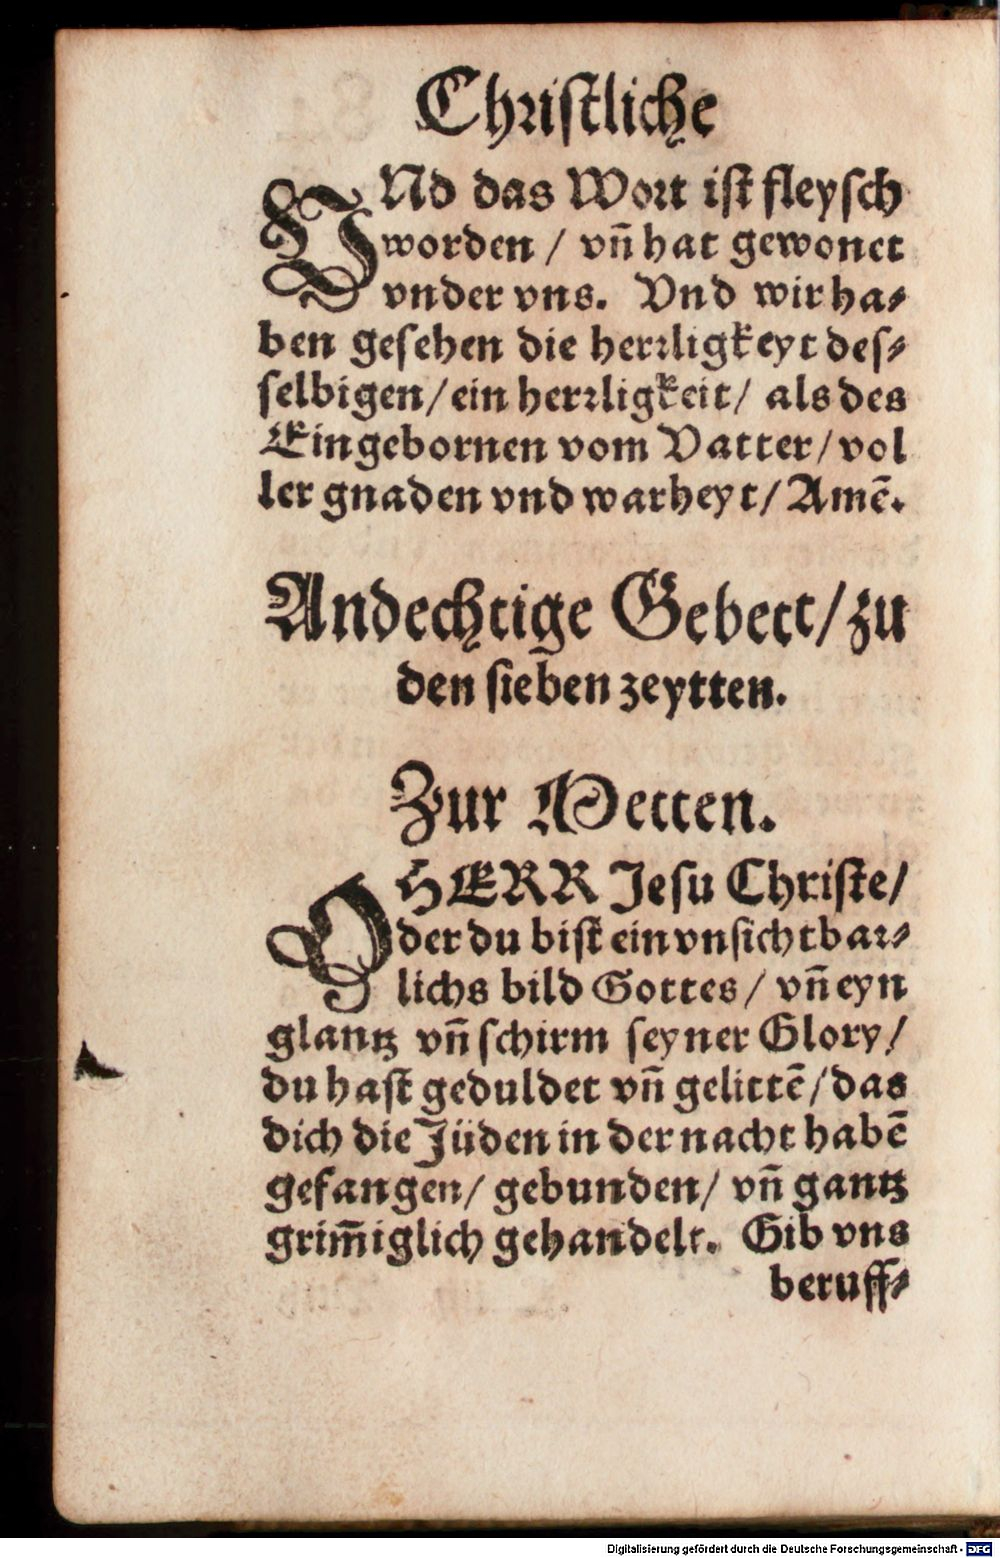 Christliche
VNd das Wort ist fleysch
worden / vñ hat gewonet
vnder vns. Vnd wir ha⸗
ben gesehen die herrligkeyt des⸗
selbigen / ein herrligkeit / als des
Eingebornen vom Vatter / vol
ler gnaden vnd warheyt / Amē.
Andechtige Gebett / zu
den sieben zeytten.
Zur Metten.
O HERR Jesu Christe /
der du bist ein vnsichtbar⸗
lichs bild Gottes / vñ eyn
glantz vñ schirm seyner Glory /
du hast geduldet vñ gelittē / das
dich die Jüden in der nacht habē
gefangen / gebunden / vñ gantz
grim̄iglich gehandelt. Gib vns
beruff⸗
Digitalisierung gefördert durch die Deutsche Forschungsgemeinschaft - DFG